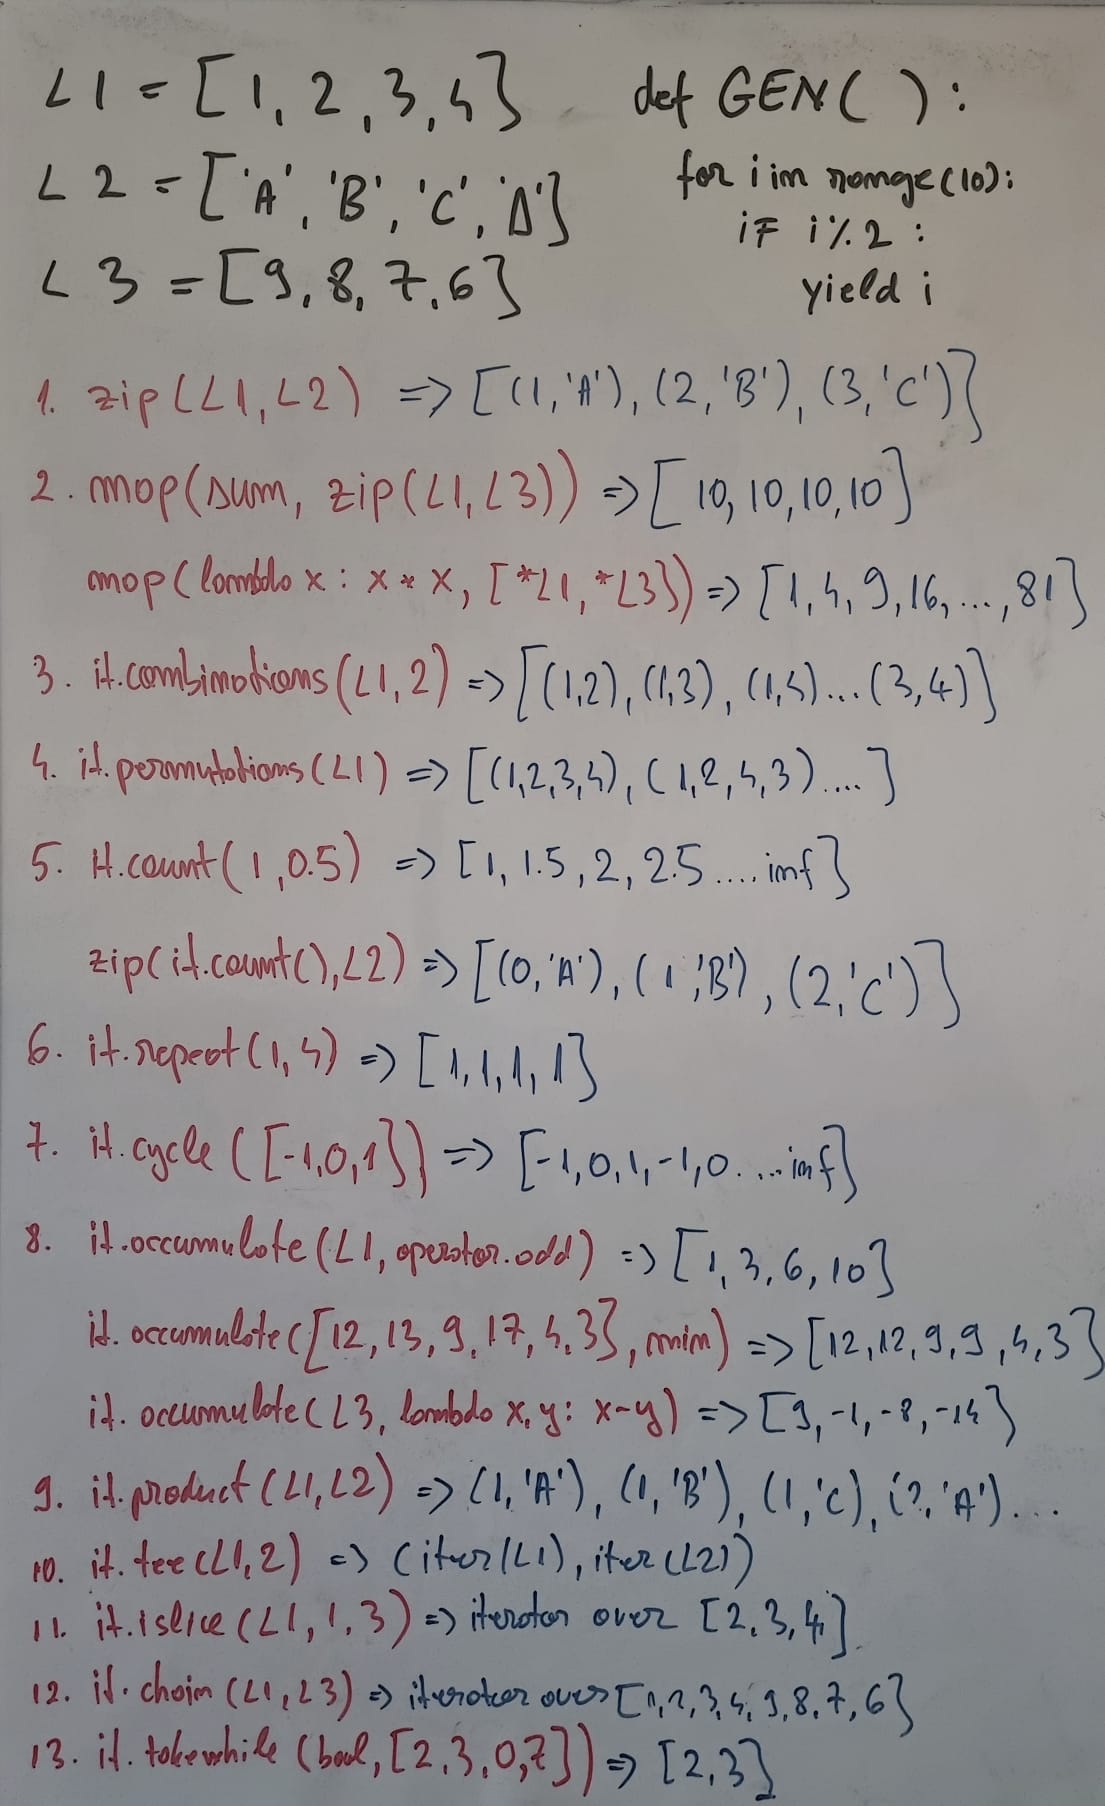 L1 = [1, 2, 3, 4]
L2 = ['A', 'B', 'C', 'D']
L3 = [9, 8, 7, 6]
def GEN( ):
for i in range(10):
if i % 2 :
yield i
1. zip(L1, L2) => [(1,'A'), (2,'B'), (3,'C')]
2. map(sum, zip(L1, L3)) => [10, 10, 10, 10]
map(lambda x : x * x, [*L1, *L3]) => [1, 4, 9, 16, ..., 81]
3. it.combinations(L1, 2) => [(1,2), (1,3), (1,4)...(3,4)]
4. it.permutations(L1) => [(1,2,3,4), (1,2,4,3)....]
5. it.count(1, 0.5) => [1, 1.5, 2, 2.5 .... inf]
zip(it.count(), L2) => [(0,'A'), (1,'B'), (2,'C')]
6. it.repeat(1, 4) => [1, 1, 1, 1]
7. it.cycle([-1,0,1]) => [-1,0,1,-1,0....inf]
8. it.accumulate(L1, operator.add) => [1, 3, 6, 10]
it.accumulate([12, 13, 9, 17, 4, 3], min) => [12, 12, 9, 9, 4, 3]
it.accumulate(L3, lambda x, y: x-y) => [9, -1, -8, -14]
9. it.product(L1, L2) => (1,'A'), (1,'B'), (1,'C), (2,'A')...
10. it.tee(L1, 2) => (iter(L1), iter(L2))
11. it.islice(L1, 1, 3) => iterator over [2, 3, 4]
12. it.chain(L1, L3) => iterator over [1, 2, 3, 4, 9, 8, 7, 6]
13. it.takewhile(bool, [2, 3, 0, 7]) => [2, 3]